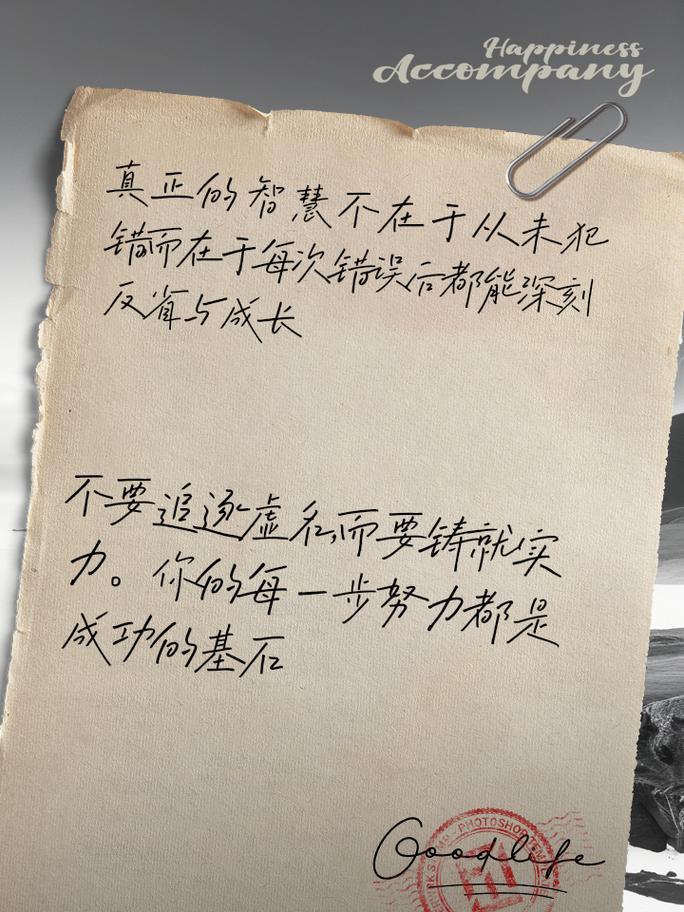 Happiness
Accompany
真正的智慧不在于从未犯
错而在于每次错误后都能深刻
反省与成长
不要追逐虚名,而要铸就实
力。你的每一步努力都是
成功的基石
PHOTOSHOP
Goodlife